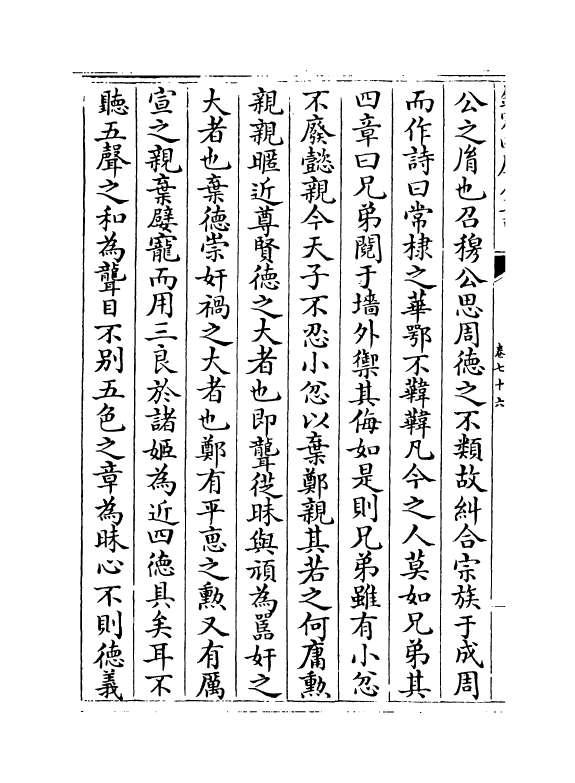 公之胤也召穆公思周徳之不類故糾合宗族于成周
而作詩曰常棣之華鄂不韡韡凡今之人莫如兄弟其
四章曰兄弟鬩于墻外禦其侮如是則兄弟雖有小忿
不廢懿親今天子不忍小忿以棄鄭親其若之何庸勲
親親暱近尊賢徳之大者也即聾從昧與頑為嚚奸之
大者也棄徳崇奸禍之大者也鄭有平惠之勲又有厲
宣之親棄嬖寵而用三良於諸姬為近四徳具矣耳不
聽五聲之和為聾目不别五色之章為昧心不則徳義
卷七十六